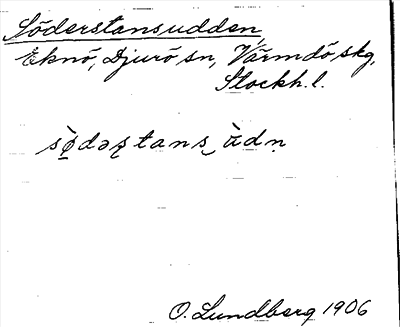 Söderstansudden
Eknö, Djurö sn, Värmdö skg,
Stockh. l.
sø̀dəʂtans ùdn̥
O. Lundberg 1906